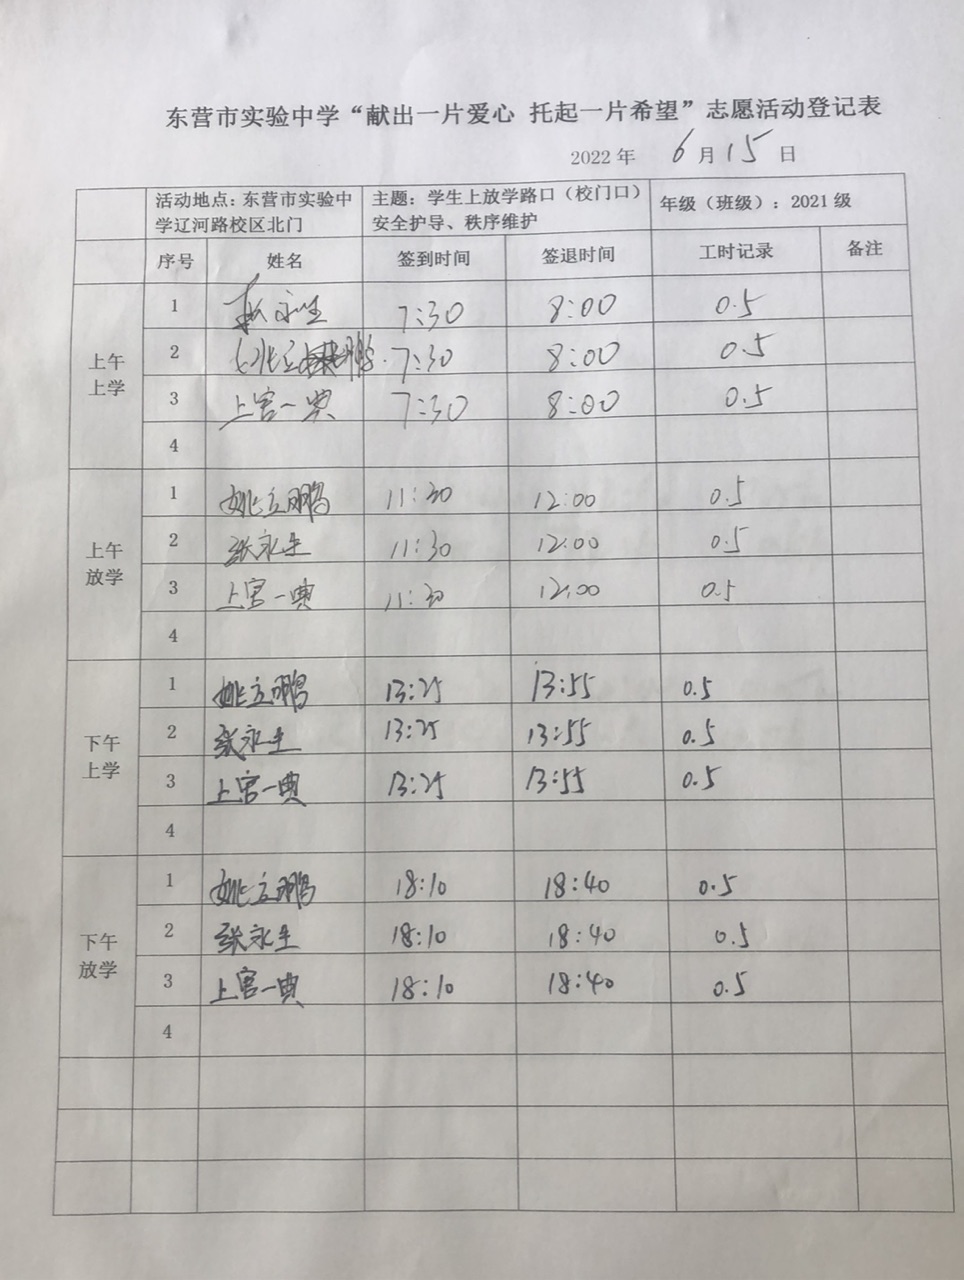 东营市实验中学“献出一片爱心 托起一片希望”志愿活动登记表
2022 年 6 月 15 日
活动地点：东营市实验中学辽河路校区北门 主题：学生上放学路口（校门口）安全护导、秩序维护 年级（班级）：2021 级
序号 姓名 签到时间 签退时间 工时记录 备注
上午上学
1 张永生 7:30 8:00 0.5
2 姚立鹏 7:30 8:00 0.5
3 上官一典 7:30 8:00 0.5
4
上午放学
1 姚立鹏 11:30 12:00 0.5
2 张永生 11:30 12:00 0.5
3 上官一典 11:30 12:00 0.5
4
下午上学
1 姚立鹏 13:25 13:55 0.5
2 张永生 13:25 13:55 0.5
3 上官一典 13:25 13:55 0.5
4
下午放学
1 姚立鹏 18:10 18:40 0.5
2 张永生 18:10 18:40 0.5
3 上官一典 18:10 18:40 0.5
4